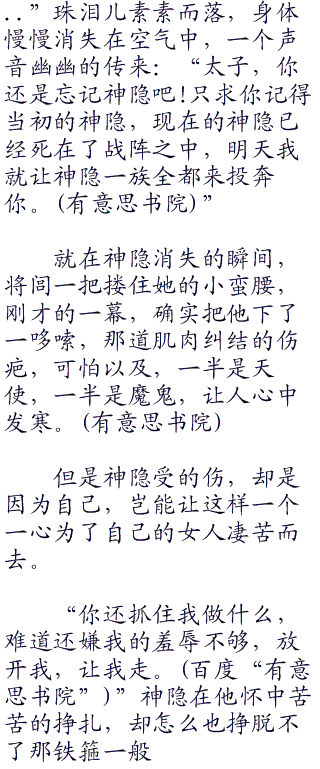 ..”珠泪儿素素而落，身体
慢慢消失在空气中，一个声
音幽幽的传来：“太子，你
还是忘记神隐吧!只求你记得
当初的神隐，现在的神隐已
经死在了战阵之中，明天我
就让神隐一族全都来投奔
你。(有意思书院)”
就在神隐消失的瞬间，
将闾一把搂住她的小蛮腰，
刚才的一幕，确实把他下了
一哆嗦，那道肌肉纠结的伤
疤，可怕以及，一半是天
使，一半是魔鬼，让人心中
发寒。(有意思书院)
但是神隐受的伤，却是
因为自己，岂能让这样一个
一心为了自己的女人凄苦而
去。
“你还抓住我做什么，
难道还嫌我的羞辱不够，放
开我，让我走。(百度“有意
思书院”)”神隐在他怀中苦
苦的挣扎，却怎么也挣脱不
了那铁箍一般